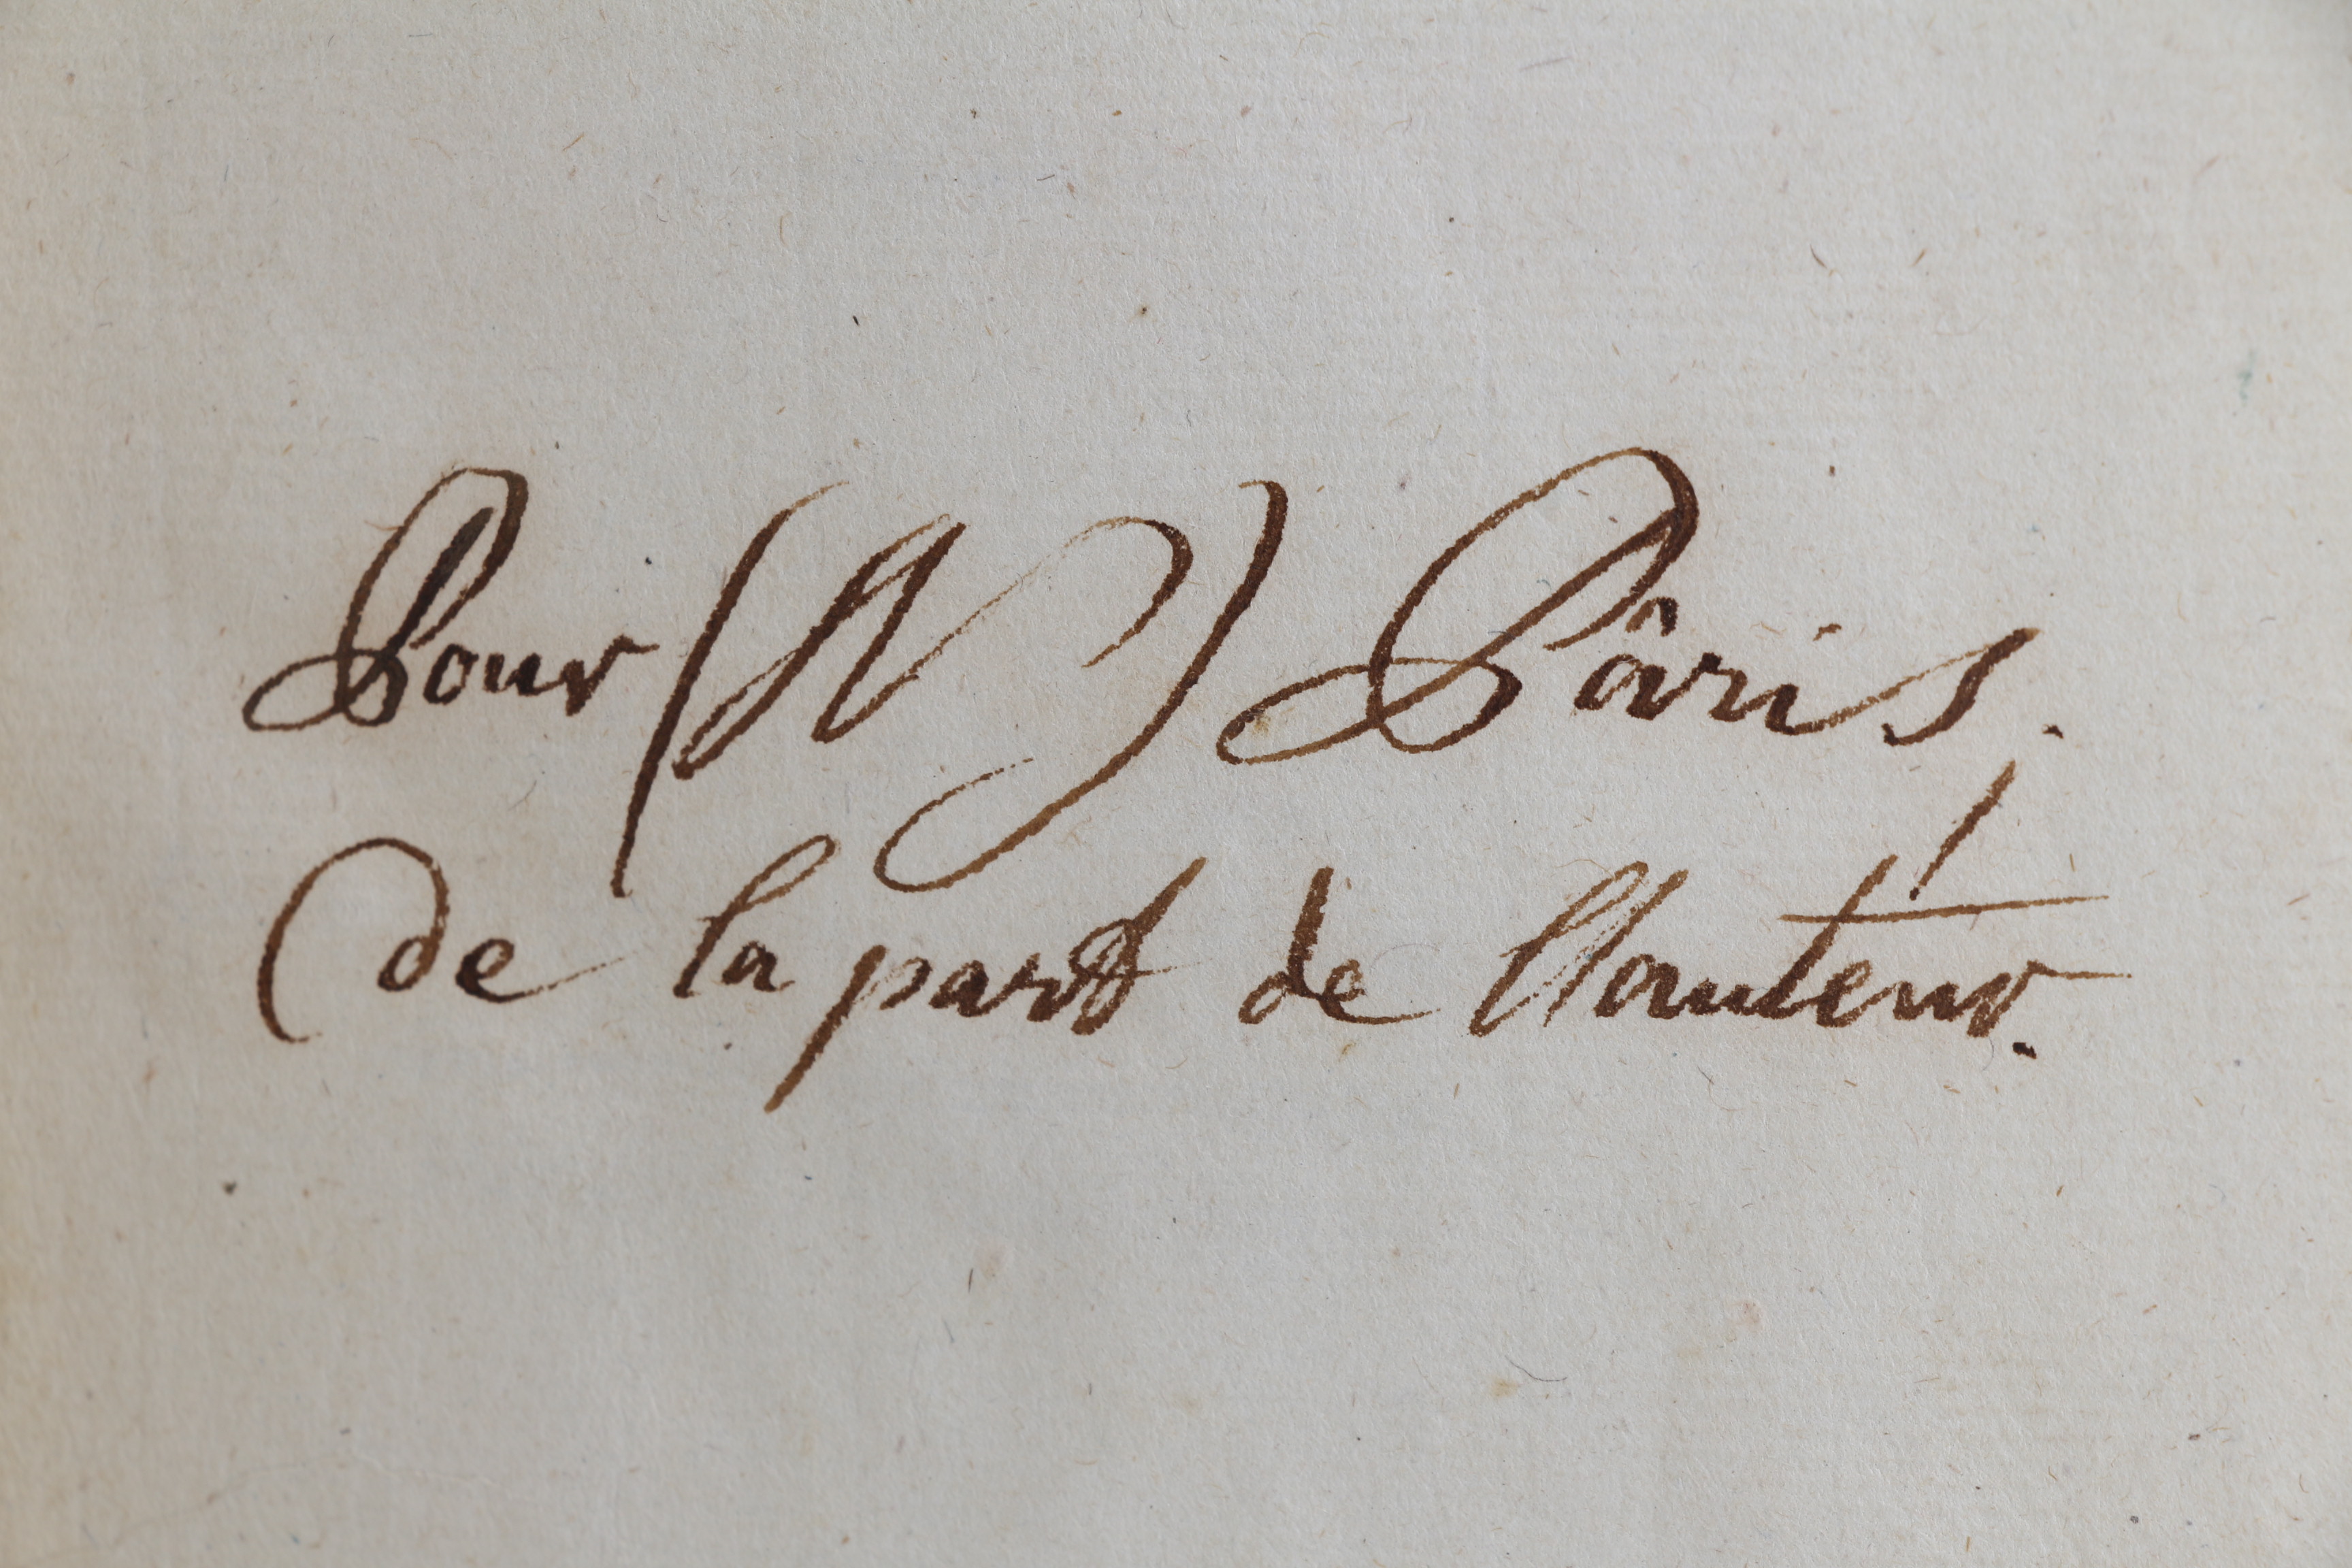 Pour (N) Pâris.
de la part de l'auteur.